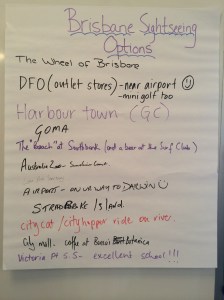 Brisbane Sightseeing
Options
The Wheel of Brisbane
DFO (outlet stores) - near airport ☺
- mini golf too
Harbour town (GC)
GOMA
The "beach" at Southbank (and a beer at the Surf Club)
Australia Zoo - Sunshine Coast.
AIRPORT - ON WAY TO DARWIN ☺
STRADBROKE ISLAND.
city cat / city hopper ride on river.
city mall. coffee at Botanica
Victoria Pt S.S - excellent school!!!